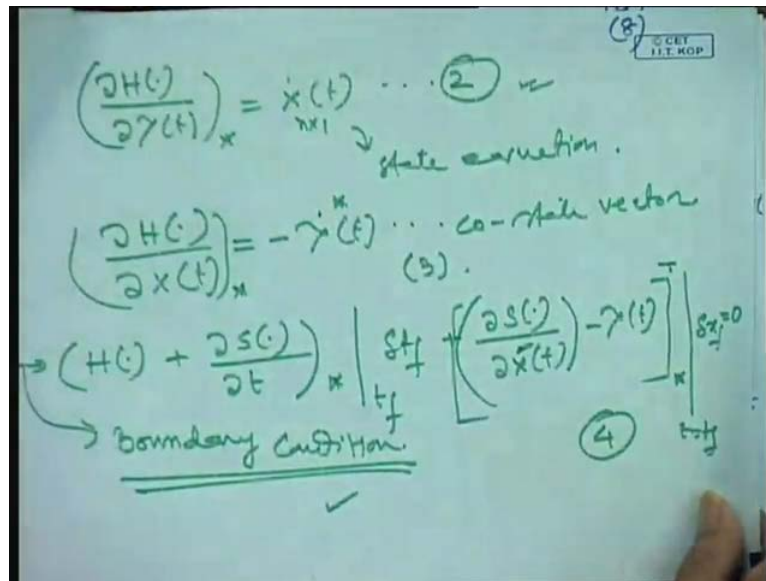 (8)
© CET
I.I.T. KGP
(∂H(·)/∂λ(t))_* = ẋ(t) ··· (2)
n×1
state equation.
(∂H(·)/∂x(t))_* = -λ̇*(t) ··· co-state vector
(3).
→ (H(·) + ∂S(·)/∂t)_* |_{t_f} δt_f + [(∂S(·)/∂x(t)) - λ(t)]^T_* |_{t=t_f} δx_f = 0
Boundary Condition. (4)